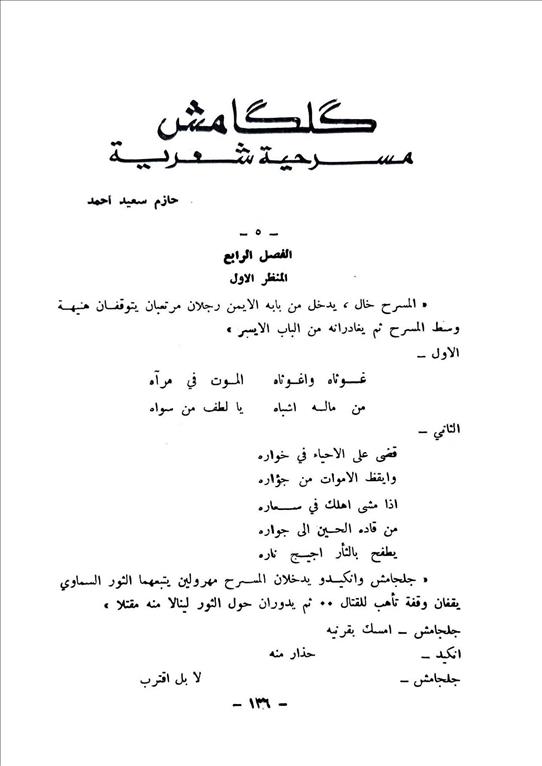 گلگامش
مسرحية شعرية
حازم سعيد احمد
ـ ٥ ـ
الفصل الرابع
المنظر الاول
« المسرح خال ، يدخل من بابه الايمن رجلان مرتعبان يتوقفان هنيهة
وسط المسرح ثم يغادرانه من الباب الايسر »
الاول ـ
غوثاه واغوثاه الموت في مرآه
من ماله اشباه يا لطف من سواه
الثاني ـ
قضى على الاحياء في خواره
وايقظ الاموات من جؤاره
اذا مشى اهلك في سعاره
من قاده الحين الى جواره
يطفح بالثأر اجيج ناره
« جلجامش وانكيدو يدخلان المسرح مهرولين يتبعهما الثور السماوي
يقفان وقفة تأهب للقتال ٠٠ ثم يدوران حول الثور لينالا منه مقتلا »
جلجامش ـ امسك بقرنيه
انكيد ـ حذار منه
جلجامش ـ لا بل اقترب
ـ ١٣٦ ـ